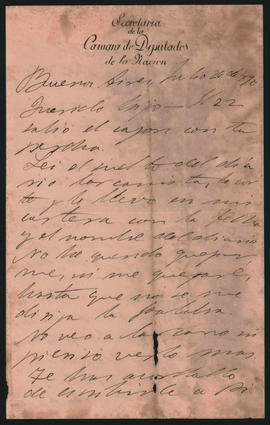 Secretaría
de la
Camara de Diputados
de la Nación
Buenos Aires, Julio 26 de
Querido hijo — El 22
salió el cajon con tu
Lei el suelto del dia
rio lo corto
y lo llevo en mi
cartera con la fecha
y el nombre del diario
No he querido quejar
me, ni me quejaré,
hasta que no se me
dirija la palabra.
No veo a ni
pienso verlo mas.
Te has
de escribirle a